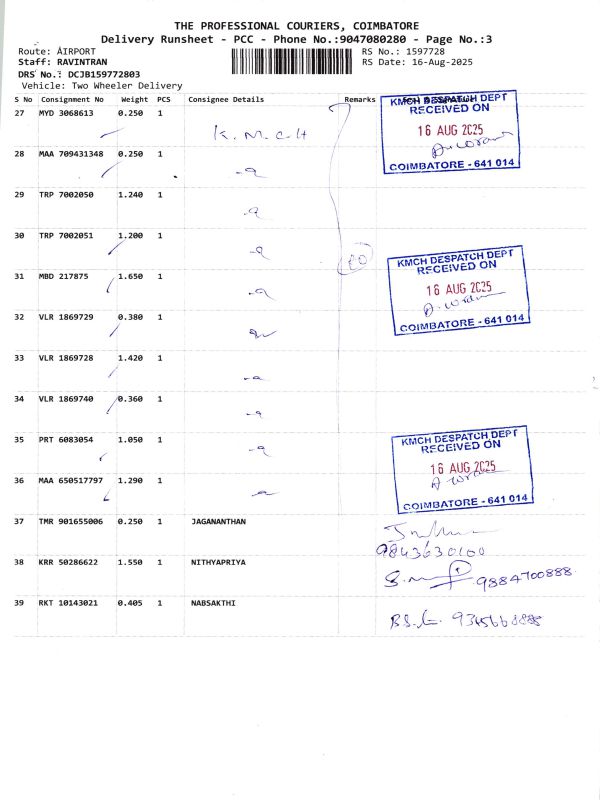 THE PROFESSIONAL COURIERS, COIMBATORE
Delivery Runsheet - PCC - Phone No.:9047080280 - Page No.:3
Route: AIRPORT
RS No.: 1597728
Staff: RAVINTRAN
RS Date: 16-Aug-2025
DRS No.: DCJB159772803
Vehicle: Two Wheeler Delivery
S No Consignment No Weight PCS Consignee Details Remarks
27 MYD 3068613 0.250 1 K.M.C.H
KMCH DESPATCH DEPT
RECEIVED ON
16 AUG 2025
COIMBATORE - 641 014
28 MAA 709431348 0.250 1
29 TRP 7002050 1.240 1
30 TRP 7002051 1.200 1
KMCH DESPATCH DEPT
RECEIVED ON
16 AUG 2025
COIMBATORE - 641 014
31 MBD 217875 1.650 1
32 VLR 1869729 0.380 1
33 VLR 1869728 1.420 1
34 VLR 1869740 0.360 1
35 PRT 6083054 1.050 1
KMCH DESPATCH DEPT
RECEIVED ON
16 AUG 2025
COIMBATORE - 641 014
36 MAA 650517797 1.290 1
37 TMR 901655006 0.250 1 JAGANANTHAN
9843630100
38 KRR 50286622 1.550 1 NITHYAPRIYA
9884700888
39 RKT 10143021 0.405 1 NABSAKTHI